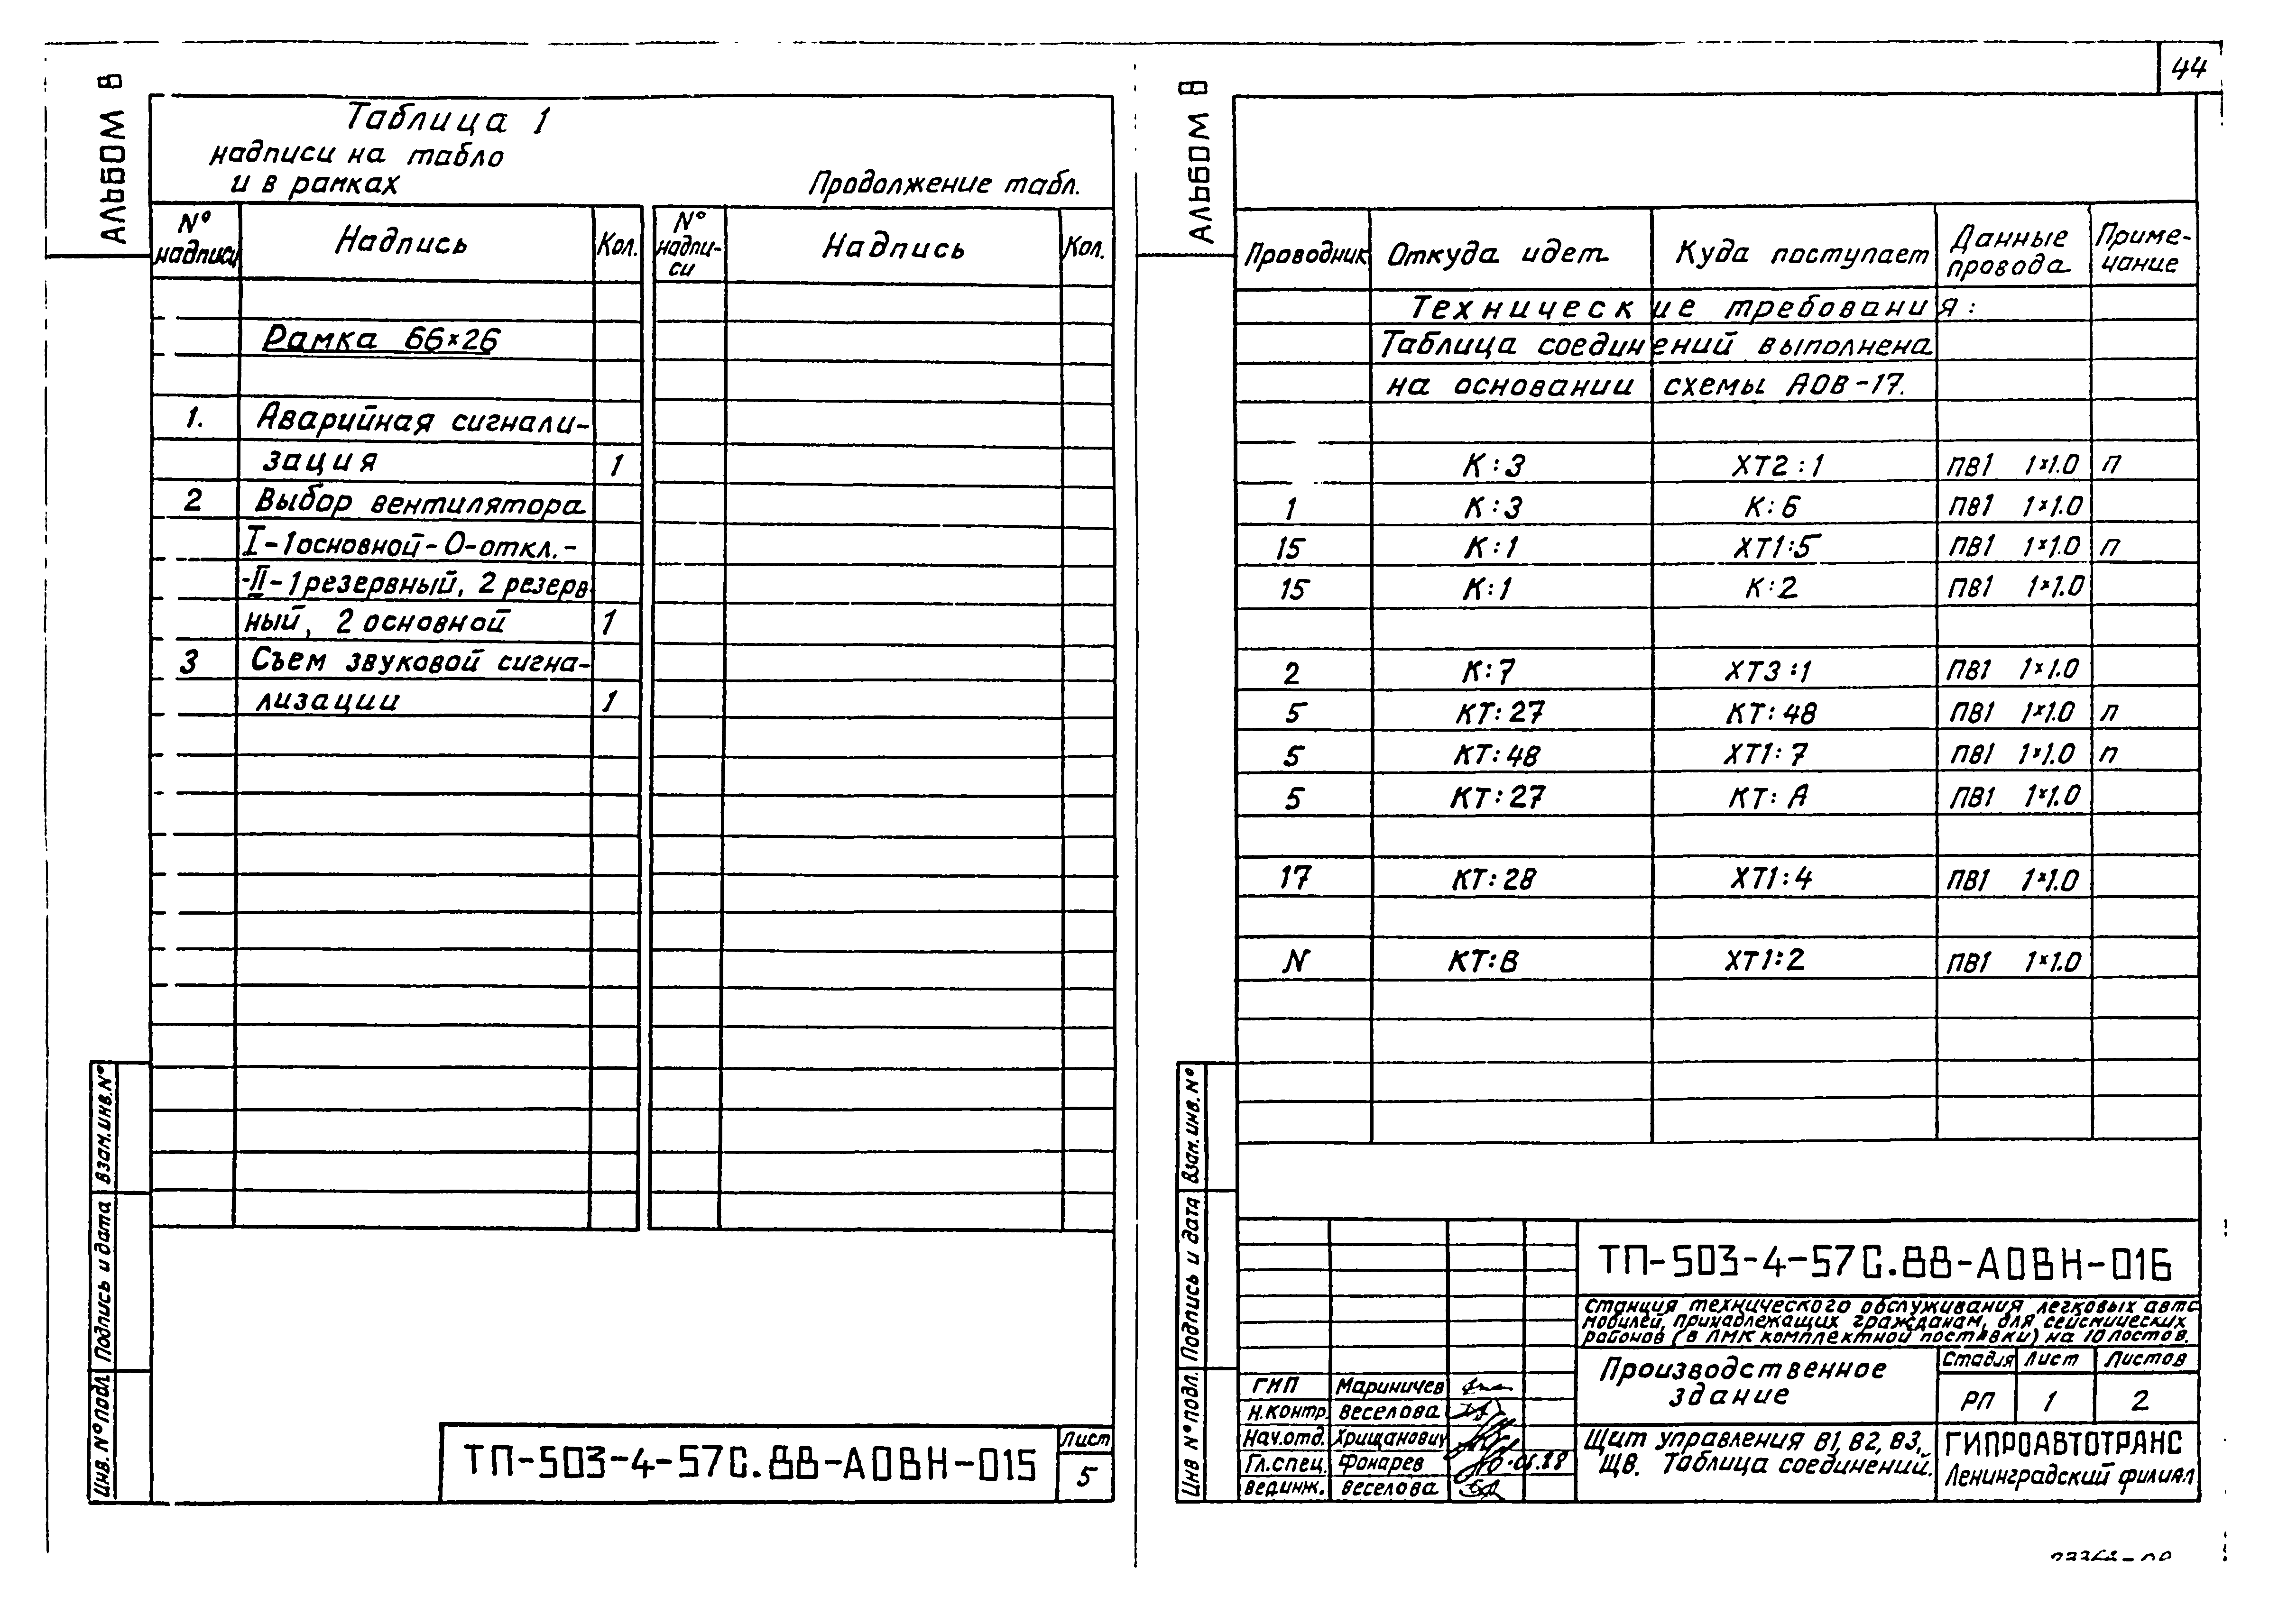 44
АЛЬБОМ 8
Таблица 1
надписи на табло
и в рамках
Продолжение табл.
№ надписи Надпись Кол. № надпи-си Надпись Кол.
Рамка 66×26
1. Аварийная сигнали-
зация 1
2 Выбор вентилятора
I-1основной-0-откл.-
-II-1резервный, 2 резерв
ный, 2 основной 1
3 Съем звуковой сигна-
лизации 1
Инв. № подл. Подпись и дата Взам.инв.№
ТП-503-4-57С.88-АОВН-015
Лист
5
АЛЬБОМ 8
Проводник Откуда идет Куда поступает Данные провода Приме-чание
Технические требования:
Таблица соединений выполнена
на основании схемы АОВ-17.
К:3 ХТ2:1 ПВ1 1×1.0 п
1 К:3 К:6 ПВ1 1×1.0
15 К:1 ХТ1:5 ПВ1 1×1.0 п
15 К:1 К:2 ПВ1 1×1.0
2 К:7 ХТ3:1 ПВ1 1×1.0
5 КТ:27 КТ:48 ПВ1 1×1.0 п
5 КТ:48 ХТ1:7 ПВ1 1×1.0 п
5 КТ:27 КТ:А ПВ1 1×1.0
17 КТ:28 ХТ1:4 ПВ1 1×1.0
N КТ:В ХТ1:2 ПВ1 1×1.0
Инв № подл. Подпись и дата Взам.инв.№
ТП-503-4-57С.88-АОВН-016
Станция технического обслуживания легковых авто
мобилей, принадлежащих гражданам, для сейсмических
районов (в ЛМК комплектной поставки) на 10 постов.
Производственное
здание
Стадия Лист Листов
РП 1 2
ГИП Мариничев
Н.контр. Веселова
Нач.отд. Хрищанович
Гл.спец. Фонарев
Вед.инж. Веселова
Щит управления В1, В2, В3,
ЩВ. Таблица соединений.
ГИПРОАВТОТРАНС
Ленинградский филиал